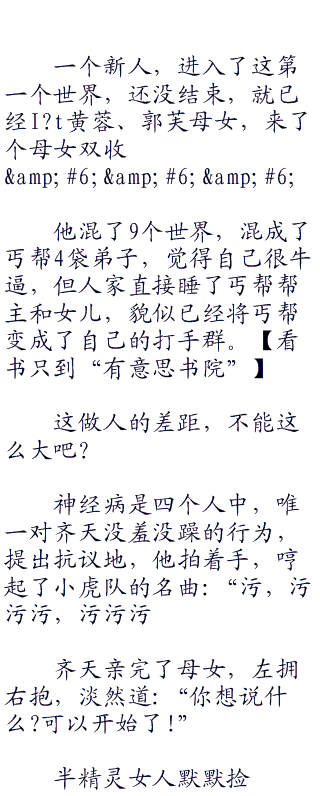 一个新人，进入了这第
一个世界，还没结束，就已
经I?t黄蓉、郭芙母女，来了
个母女双收
&amp;#6;&amp;#6;&amp;#6;
他混了9个世界，混成了
丐帮4袋弟子，觉得自己很牛
逼，但人家直接睡了丐帮帮
主和女儿，貌似已经将丐帮
变成了自己的打手群。【看
书只到“有意思书院”】
这做人的差距，不能这
么大吧?
神经病是四个人中，唯
一对齐天没羞没躁的行为，
提出抗议地，他拍着手，哼
起了小虎队的名曲：“污，污
污污，污污污
齐天亲完了母女，左拥
右抱，淡然道：“你想说什
么?可以开始了!”
半精灵女人默默捡